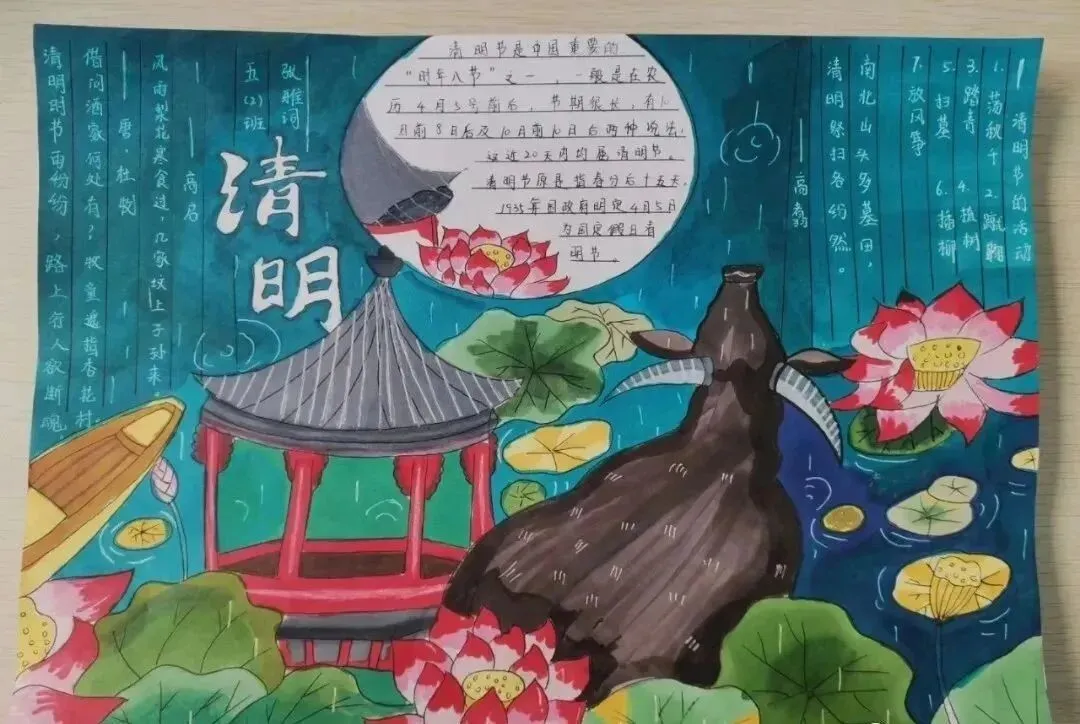 清明
清明节是中国重要的
“时年八节”之一，一般是在农
历4月5号前后，节期很长，有10
日前8日后及10日前10日后两种说法，
这近20天内的属清明节。
清明节原是指春分后十五天，
1935年国政府明定4月5日
为国定假日
明节。
清明节的活动
1.荡秋千 2.蹴鞠
3.踏青 4.植树
5.扫墓 6.插柳
7.放风筝
南北山头多墓田，
清明祭扫各纷然。
高翥
张雅词
五(2)班
高启
风雨梨花寒食过，几家坟上子孙来。
唐·杜牧
借问酒家何处有？牧童遥指杏花村。
清明时节雨纷纷，路上行人欲断魂。